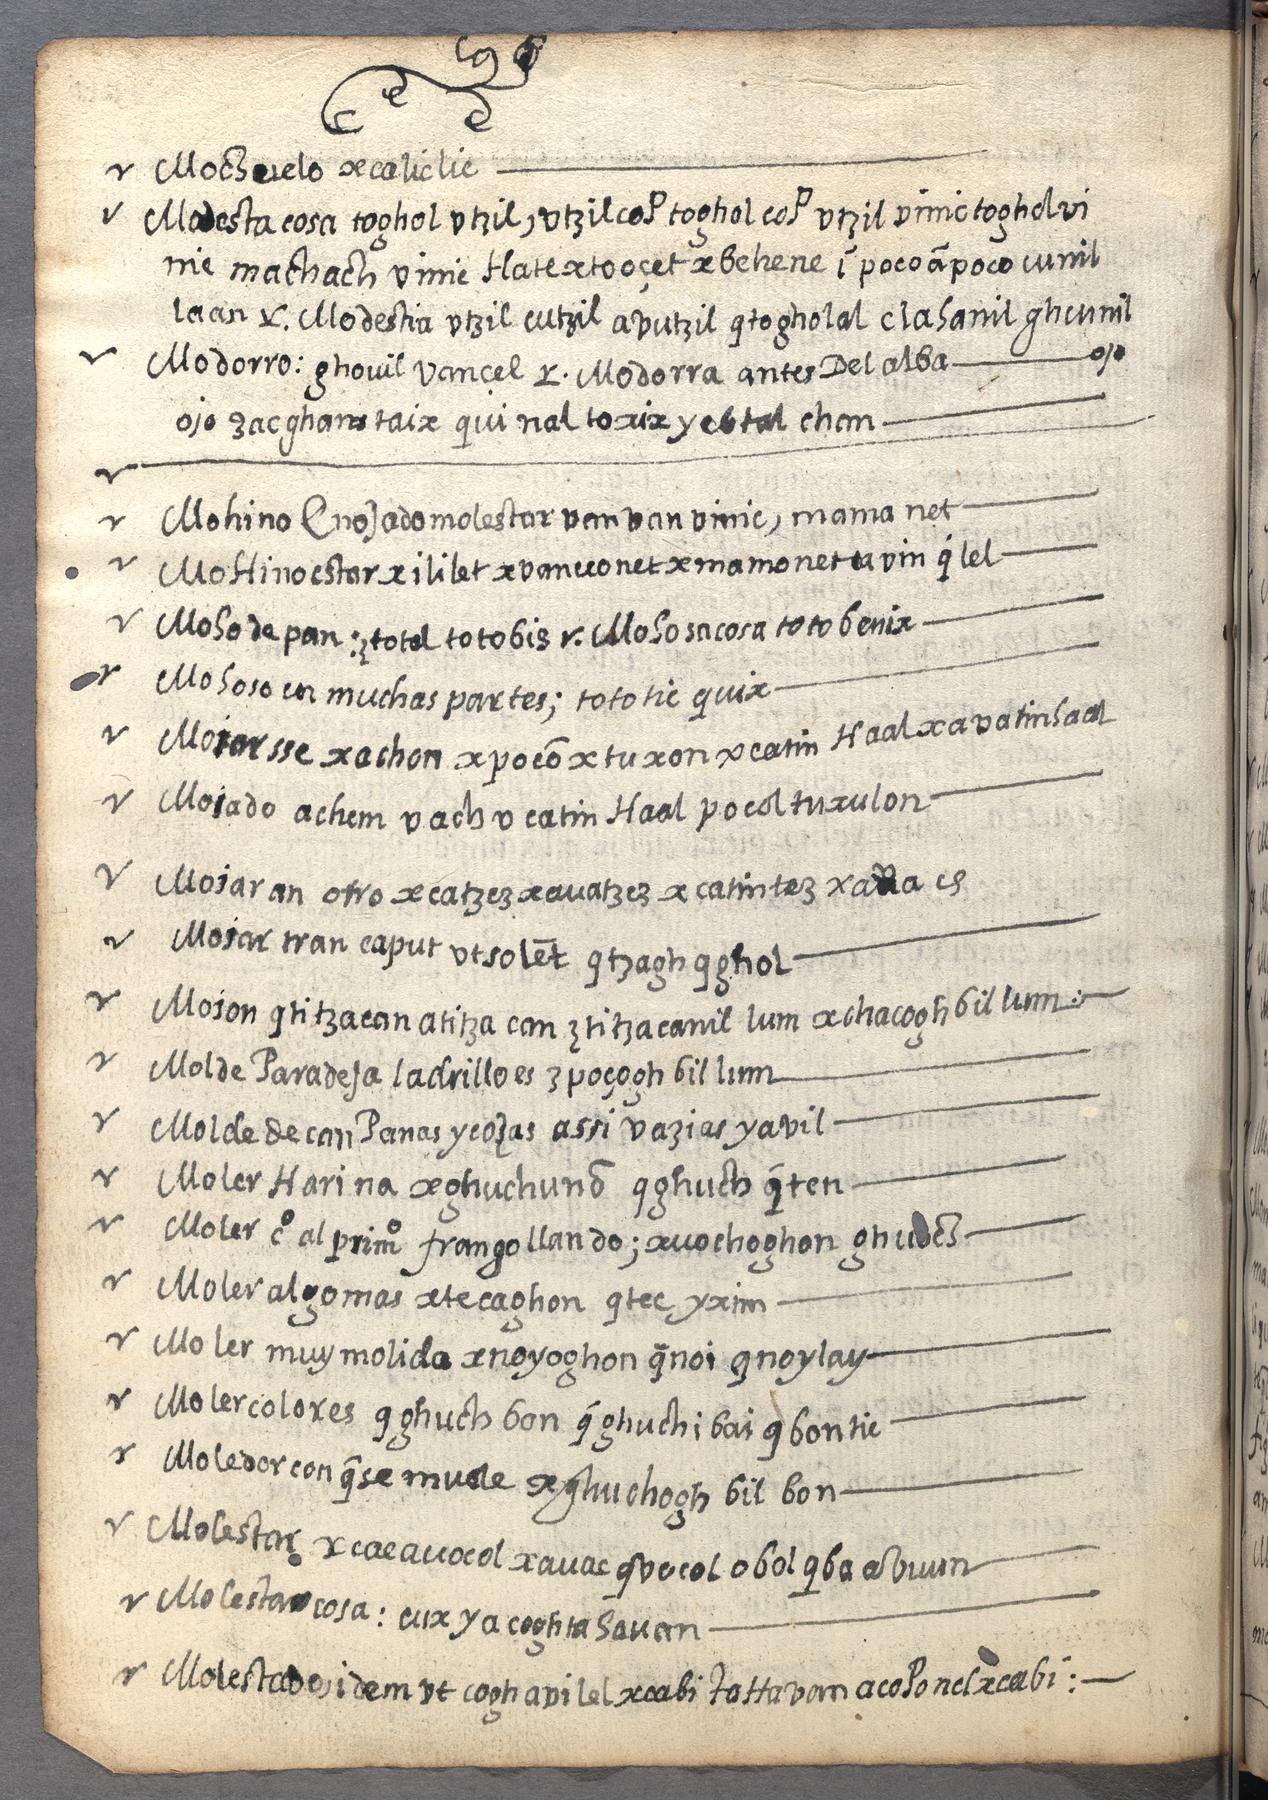 Mochuelo xcaliclic
Modesta cosa toghol vtzil, vtzil cop toghol cop vtzil vinic toghol vi
nic machach vinic Hatextooçet xbehene i poco ā poco cunil
laan r. Modestia vtzil cutzil avutzil qtogholal clasanil ghcunil
Modorro: ghouil vançel r. Modorra antes Del alba ojo
ojo zacghams taix qui nal toxix y ebtal chan
Mohino Enojado molestar van van vinic, mama net
Mohino estar x ililet xvancconet xmamonet ta vin q lel
Moho de pan; totol totobis r. Mohosa cosa totobenix
Mohoso en muchas partes; tototic quix
Mojarsse xachon xpocō xtuxon xcatin Haal xavatinhaal
Mojado achem vach v catin Haal pocol tuxulon
Mojar an otro xcatzez xauatzez xcatintez
Mojar tran caput vt solēt qtzagh qghol
Mojon qtitzacan atitza can ztitzacanil lum xchacoghbil lum
Molde Paradeja ladrillo es zpoçogh bil lum
Molde de can Panas y cosas assi vazias yavil
Moler Harina xghuchunō qghuch q̄ten
Moler cº al primº frangollando; xuochoghon
Moler algo mas xtecaghon qtec yxim
Moler muy molida xnoyoghon q̄noi qnoylay
Moler colores qghuch bon q̄ghuchi bai qbontic
Moledor con q̄se muele xghuchogh bil bon
Molestar xcacauocol xauac qvocol obol qba
Molestar cosa: cux y a coghta Sauan
Molestado, idem vt cogh avilel xcabi vam acoponel xcabi: